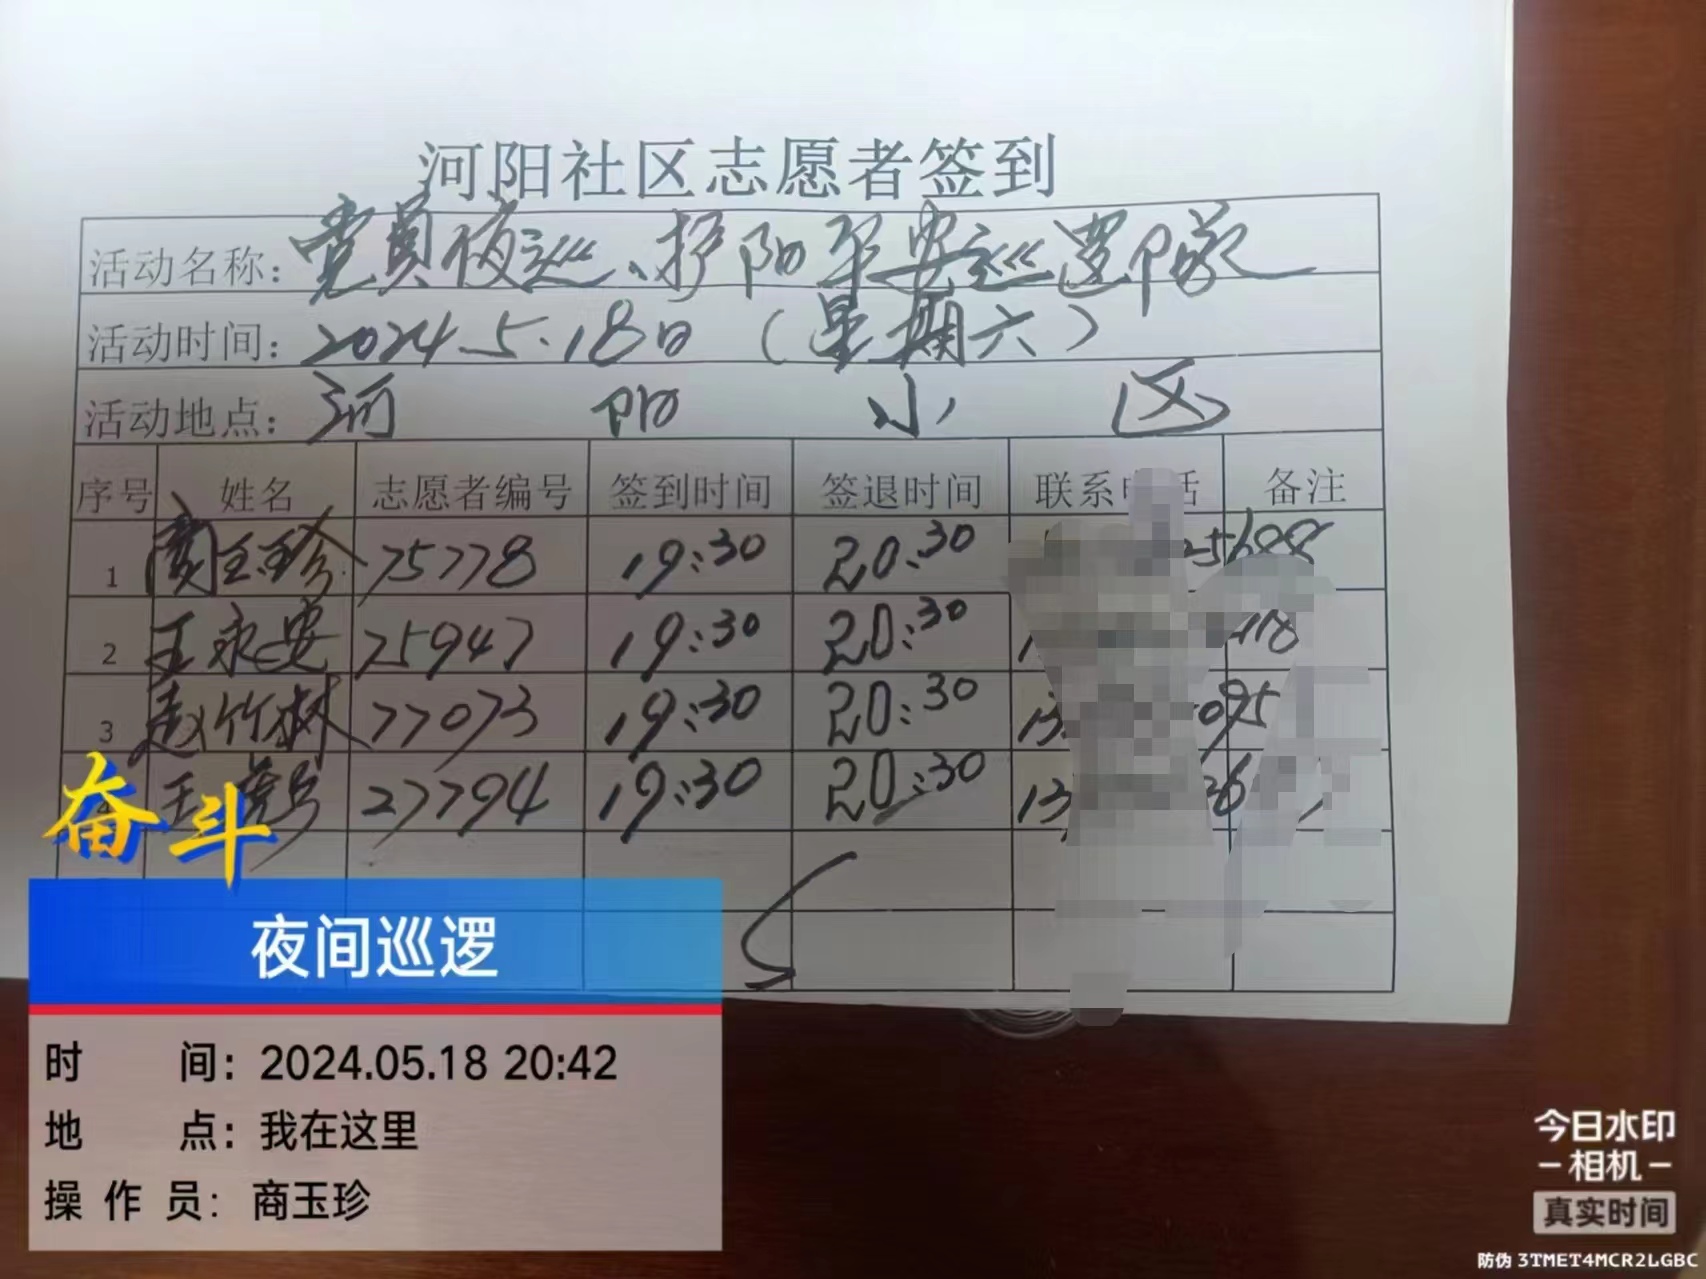 河阳社区志愿者签到
活动名称：党员夜巡、护阳平安巡逻队
活动时间：2024.5.18日（星期六）
活动地点：河阳小区
序号 姓名 志愿者编号 签到时间 签退时间 联系电话 备注
1 商玉珍 75778 19:30 20:30 25688
2 王永安 75947 19:30 20:30 1 118
3 赵竹林 77073 19:30 20:30 13 095
4 王 27794 19:30 20:30 13 36
奋斗
夜间巡逻
时 间：2024.05.18 20:42
地 点：我在这里
操作员：商玉珍
今日水印
-相机-
真实时间
防伪 3TMET4MCR2LGBC